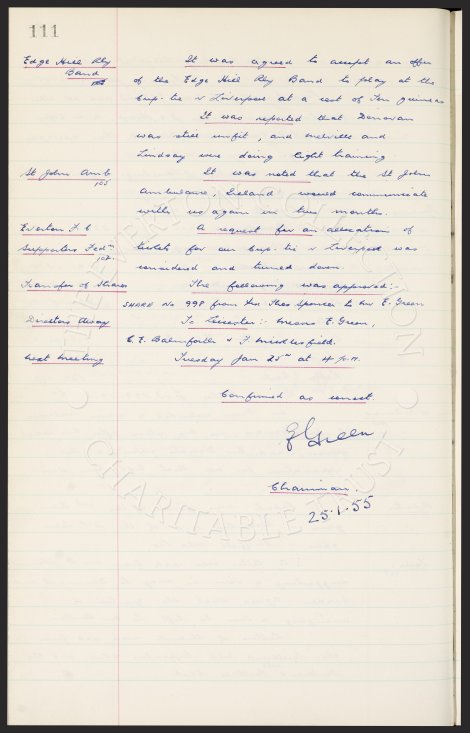 111
Edge Hill Rly
Band
It was agreed to accept an offer
of the Edge Hill Rly Band to play at the
Cup-tie v Liverpool at a cost of Ten guineas
It was reported that Donovan
was still unfit, and Melville and
Lindsay were doing light training.
St John Amb
105
It was noted that the St John
Ambulance, Ireland would communicate
with us again in two months.
Everton F.C
Supporters Fedn
102
A request for an allocation of
tickets for our Cup-tie v Liverpool was
considered and turned down.
Transfer of Shares
The following was approved:-
SHARE No 998 from Thos Spencer to Mr E. Green
Directors Away
To Leicester:- Messrs E. Green,
C. E. Balmforth & F. Micklesfield.
Next Meeting
Tuesday Jan 25th at 4 p.m.
Confirmed as correct.
E Green
Chairman.
25.1.55
THE EVERTON COLLECTION
CHARITABLE TRUST